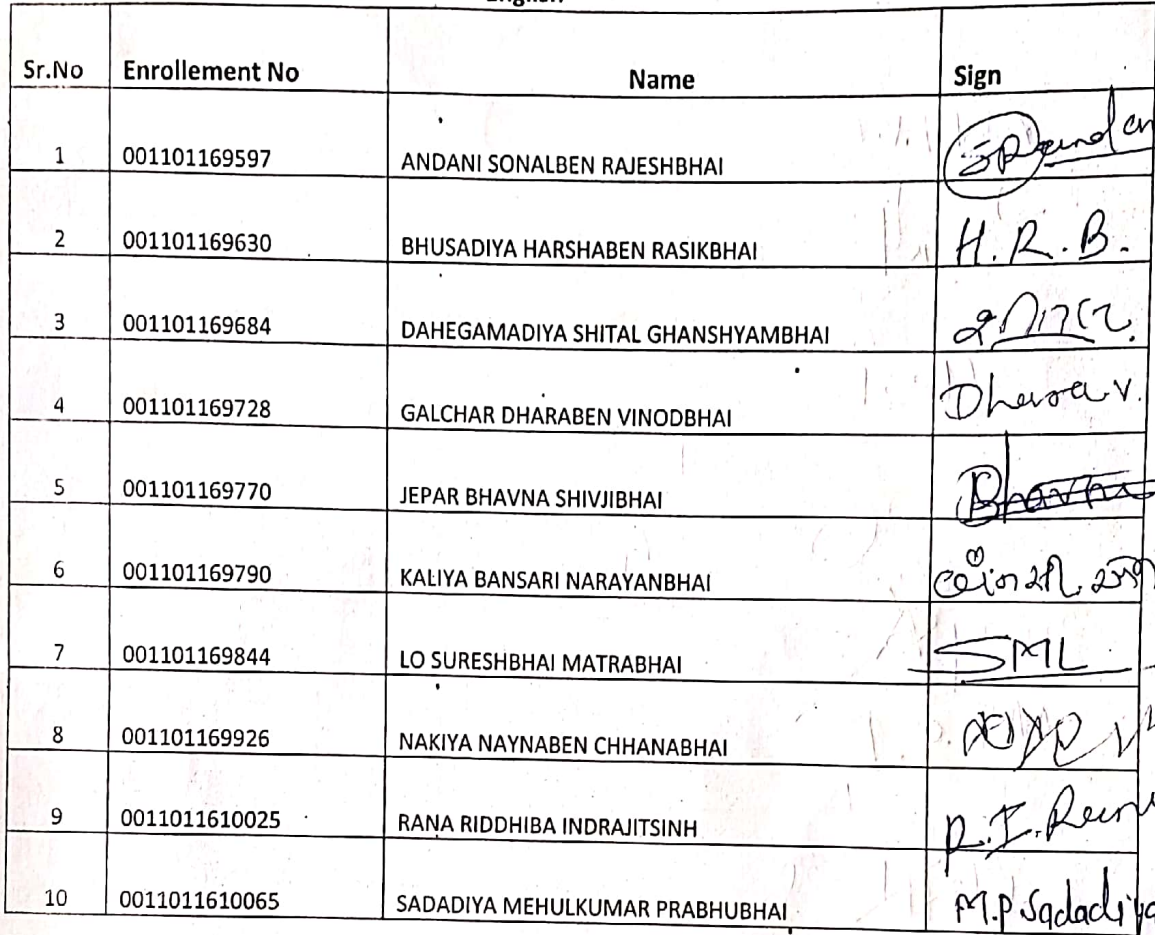 English
Sr.No Enrollement No Name Sign
1 001101169597 ANDANI SONALBEN RAJESHBHAI
2 001101169630 BHUSADIYA HARSHABEN RASIKBHAI H.R.B.
3 001101169684 DAHEGAMADIYA SHITAL GHANSHYAMBHAI
4 001101169728 GALCHAR DHARABEN VINODBHAI Dhara V.
5 001101169770 JEPAR BHAVNA SHIVJIBHAI Bhavna
6 001101169790 KALIYA BANSARI NARAYANBHAI
7 001101169844 LO SURESHBHAI MATRABHAI SML
8 001101169926 NAKIYA NAYNABEN CHHANABHAI
9 0011011610025 RANA RIDDHIBA INDRAJITSINH R.I. Rana
10 0011011610065 SADADIYA MEHULKUMAR PRABHUBHAI M.P Sadadiya